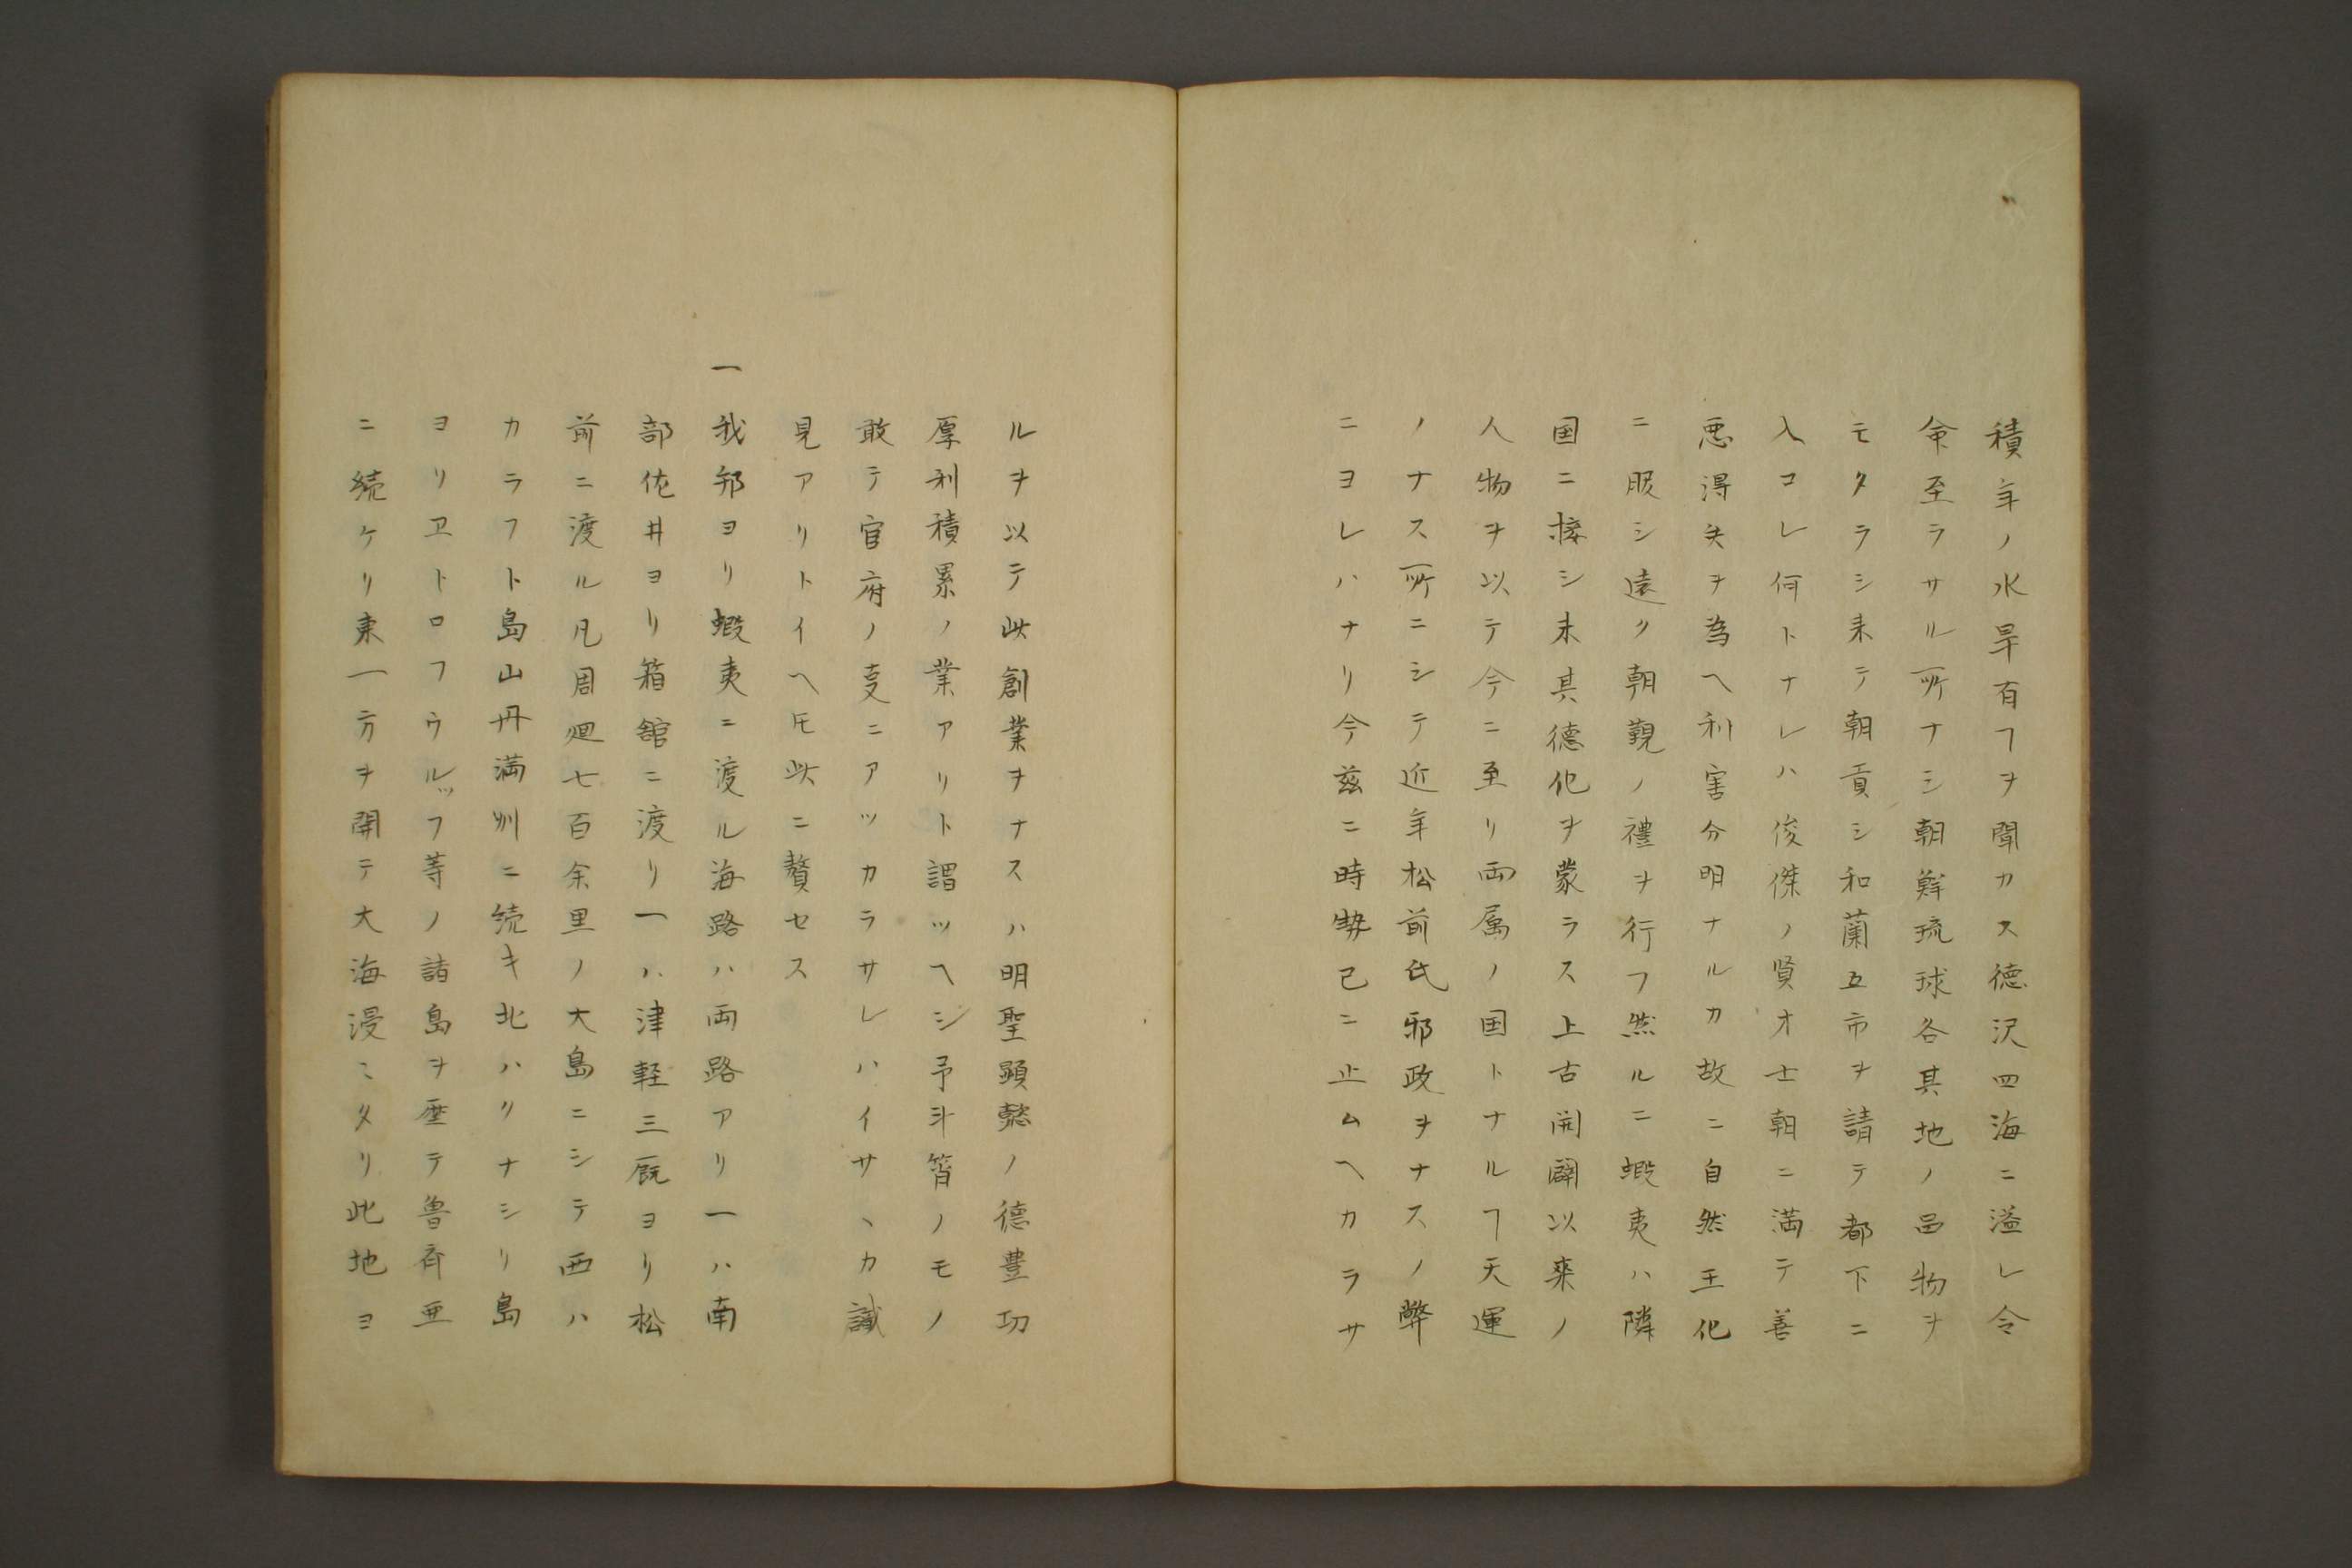 積年ノ水旱有ヿヲ聞カス徳沢四海ニ溢レ令
命至ラサル所ナシ朝鮮琉球各其地ノ品物ヲ
モタラシ来テ朝貢シ和蘭互市ヲ請テ都下ニ
入コレ何トナレハ俊傑ノ賢才士朝ニ満テ善
悪得失ヲ為ヘ利害分明ナルカ故ニ自然王化
ニ服シ遠ク朝覲ノ禮ヲ行フ然ルニ蝦夷ハ隣
国ニ接シ未其徳化ヲ蒙ラス上古開闢以来ノ
人物ヲ以テ今ニ至リ両属ノ国トナルヿ天運
ノナス所ニシテ近年松前氏邪政ヲナスノ弊
ニヨレハナリ今茲ニ時勢已ニ止ムヘカラサ
ルヲ以テ此創業ヲナスハ明聖顕懿ノ徳豊功
厚利積累ノ業アリト謂ツヘシ予斗筲ノモノ
敢テ官府ノ叓ニアツカラサレハイサヽカ識
見アリトイヘ𪜈此ニ贅セス
一我邦ヨリ蝦夷ニ渡ル海路ハ両路アリ一ハ南
部佐井ヨリ箱舘ニ渡リ一ハ津軽三厩ヨリ松
前ニ渡ル凡周廻七百余里ノ大島ニシテ西ハ
カラフト島山丹満州ニ続キ北ハクナシリ島
ヨリヱトロフウルッフ等ノ諸島ヲ歴テ魯斉亜
ニ続ケリ東一方ヲ開テ大海漫ミタリ此地ヨ